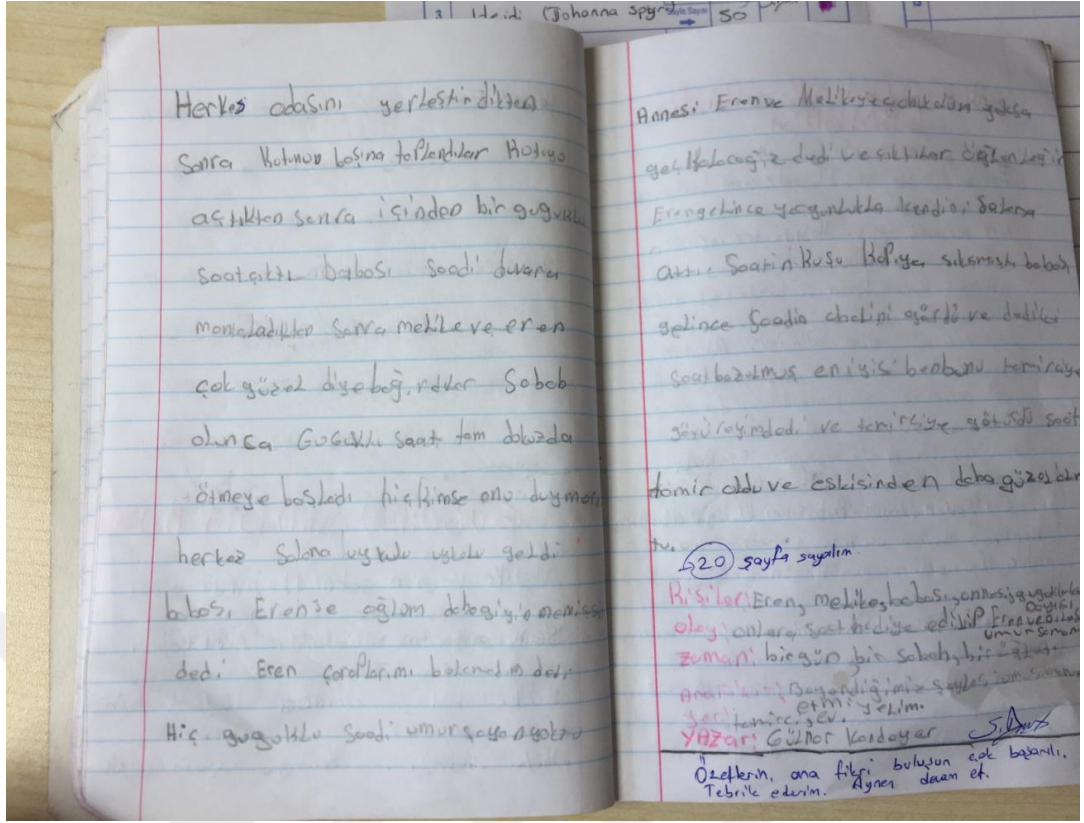 3 Heidi (Johanna Spyri) Sayfa Sayısı 50
Herkes odasını yerleştirdikten
Sonra Kutunun başına toplandılar Kutuyu
açtıktan sonra içinden bir guguklu
saatçıktı babası saadi duvara
monteladıktan sonra melike ve eren
çok güzel diye bağırdılar Sabah
olunca Guguklu saat tam dokuzda
ötmeye başladı hiçkimse onu duymadı
herkez salona uykulu uykulu geldi
babası Erense oğlum dahagiyinmemişsin
dedi Eren çoraplarımı bulamadım dedi
Hiç guguklu saadi umursayan yoktu
Annesi Eren ve Melikeye çıkalım yoksa
geç kalacağız dedi ve çıktılar
Erengelince yorgunlukla kendini salona
attı. Saatin Kuşu Kapıya sıkışmıştı babası
gelince saadin halini gördü ve dediki
saatbozulmuş eniyisi benbunu tamirciye
götüreyimdedi ve tamirciye götürdü saat
tamir olduve eskisinden daha güzel olmuş
tu.
20 sayfa sayalım
Kişiler: Eren, melike, babası, annesi, guguklu
olay: onlara saat hediye edilip Eren ve
zaman: birgün, bir sabah, bir
Beğendiğimiz şeyleri
etmiyelim.
Yer: tamirci, ev.
YAZar: Gülnar Kandeyer
Özetlerin, ana fikri buluşun çok başarılı.
Tebrik ederim. Aynen devam et.